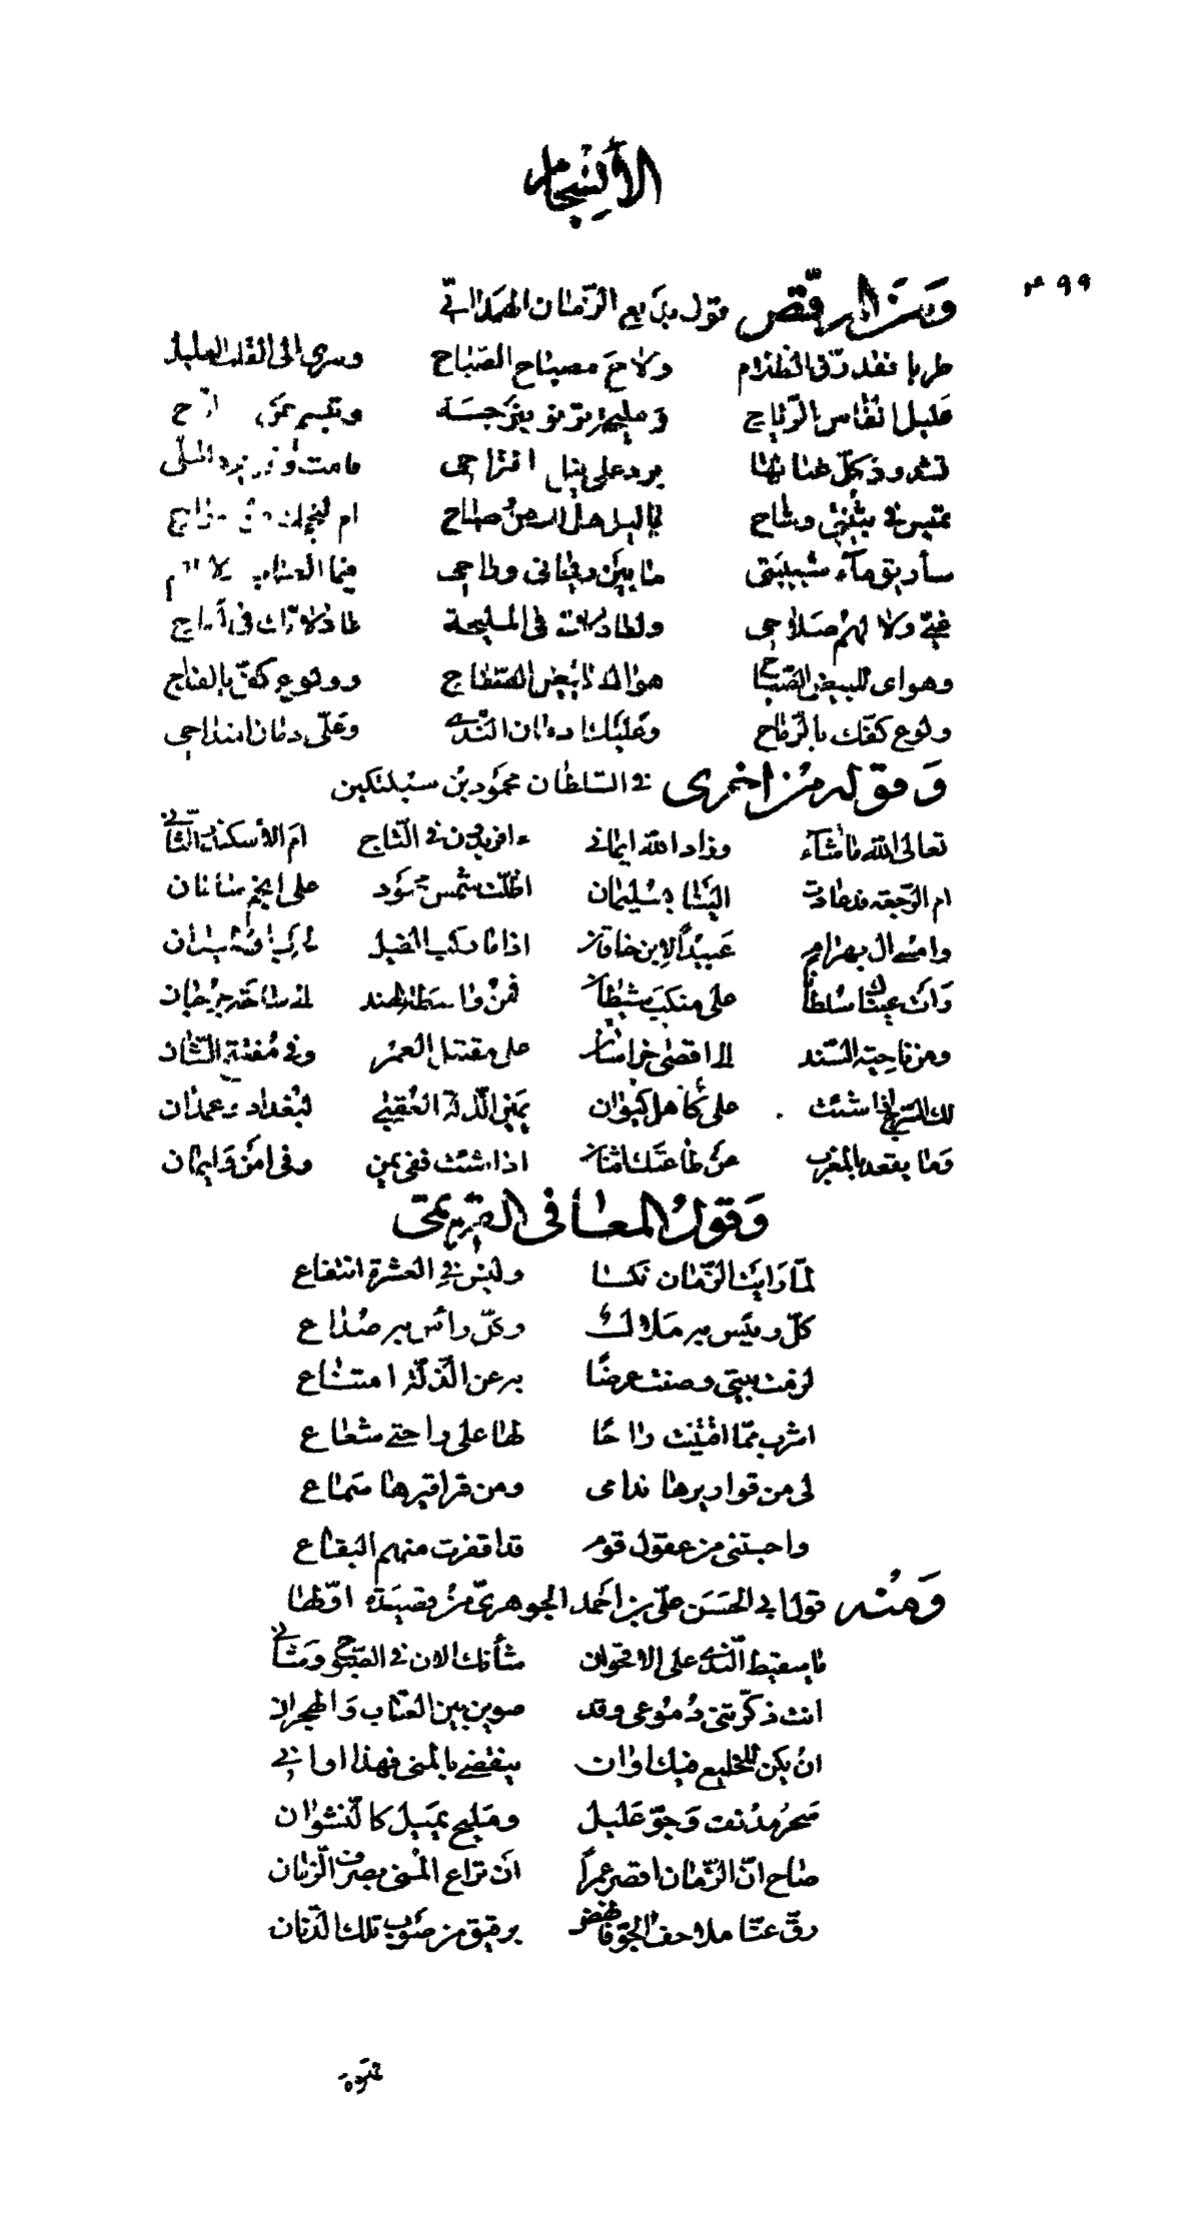 الانسجام
٣٩٩
ومن المرقص قول بديع الزمان الهمداني
طربا فقد رق الظلام ولاح مصباح الصباح وسرى الى القلب العليل
عليل انفاس الرياح ومليحة ترنو بنرجسة وتبسم عن
تشدو وكل غنائها برد على نيل اقتراحي
يا ليل هل لك من صباح ام لنجمك من
سأريق ماء شبيبتي ما بين ريقاتي وراحي فيما العتاب
غيّي ولا لهم صلاحي ولطال كانت في المليحة
وهواى للبيض الصباح هواك للبيض الصفاح وولوع كفى بالقداح
ولوع كفك بالرماح وعليك ادمان الندى وعلى ادمان امتداحي
وقوله من اخرى في السلطان محمود بن سبكتكين
تعالى الله ما شاء وزاد الله ايمانى ءافريدون في التاج ام الأسكندر الثانى
ام الرجعة قد عادت الينا بسليمان اظلت شمس محمود على انجم سامان
وامسى ال بهرام عبيدًا لابن خاقان اذا ما ركب الفيل
رأت عيناك سلطانا على منكب شيطان فمن واسطة الهند الى ساحة جرجان
ومن ناحية السند الى اقصى خراسان على مقتبل العمر وفي مفتتح الشان
لك السرج اذا شئت على كاهل كيوان يمين الدولة العقبى لبغداد وغمدان
وما يقعد بالمغرب عن طاعتك اثنان اذا شئت ففى يمن وفى امن وايمان
وقول المعافى القزيمى
لمّا رايت الزمان نكسا وليس في العشرة انتفاع
كلّ رئيس به ملال وكلّ رأس به صداع
لزمت بيتى وصنت عرضًا به عن الذلة امتناع
اشرب ممّا اقتنيت راحًا لها على راحتى شعاع
لى من قواريرها ندامى ومن قراقيرها سماع
واجتنى من عقول قوم قد اقفرت منهم البقاع
ومنه قول ابي الحسن على بن احمد الجوهرى من قصيدة اولها
يا سقيط الندى على الاقحوان شأنك الان في الصبوح وشانى
انت ذكرتنى دموعى وقد صوبن بين العتاب والهجران
ان يكن للخليع فيك اوان ينقضي بالمنى فهذا اوانى
سحر مدنف وجوّ عليل ومليح يميل كالنشوان
صاح ان الزمان اقصر عمرًا ان تراع المنى بصرف الزمان
رق عنا ملاحف الجو فانهض برقيق من صوب تلك الدنان